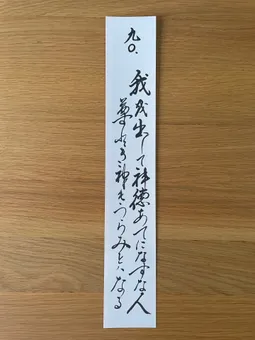 九〇.
我を出して神徳あてになすな人
尊 神 うらみとハなる